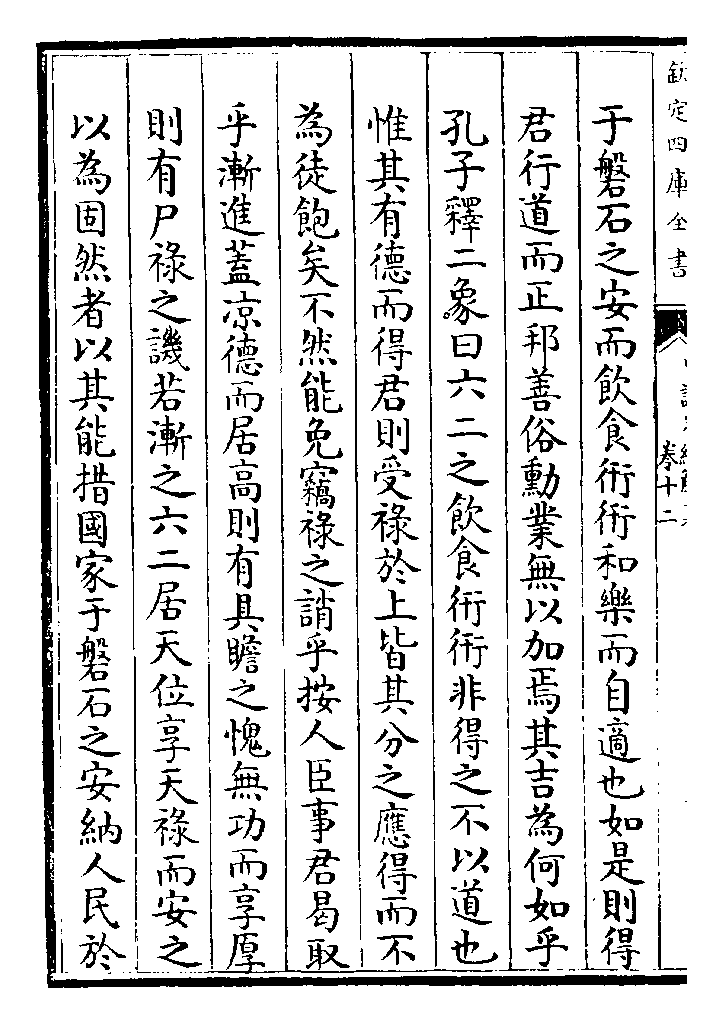 欽定四庫全書
卷十二
于磐石之安而飲食衎衎和樂而自適也如是則得
君行道而正邦善俗勳業無以加焉其吉為何如乎
孔子釋二象曰六二之飲食衎衎非得之不以道也
惟其有德而得君則受祿於上皆其分之應得而不
為徒飽矣不然能免竊祿之誚乎按人臣事君曷取
乎漸進蓋凉德而居高則有具瞻之愧無功而享厚
則有尸祿之譏若漸之六二居天位享天祿而安之
以為固然者以其能措國家于磐石之安納人民於